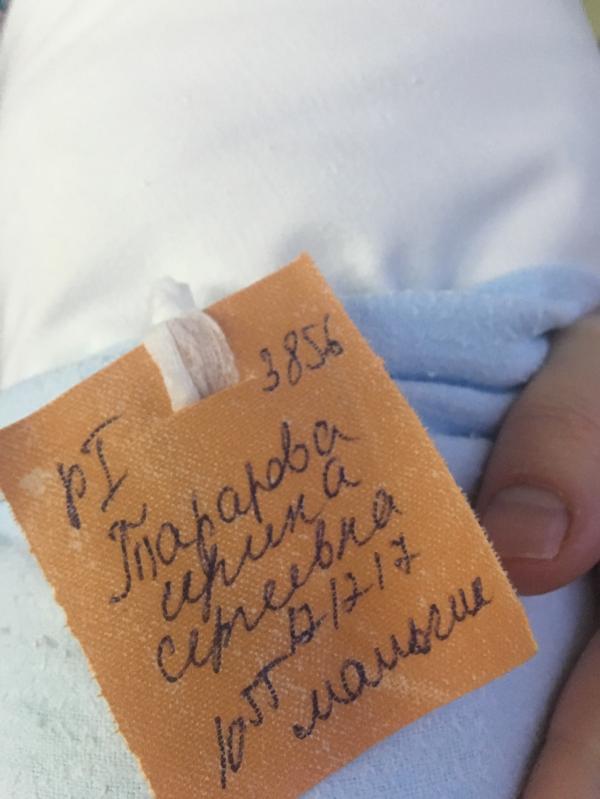 3856
рI
Тарарова
Ирина
Сергеевна
121217
10 55 мальчик